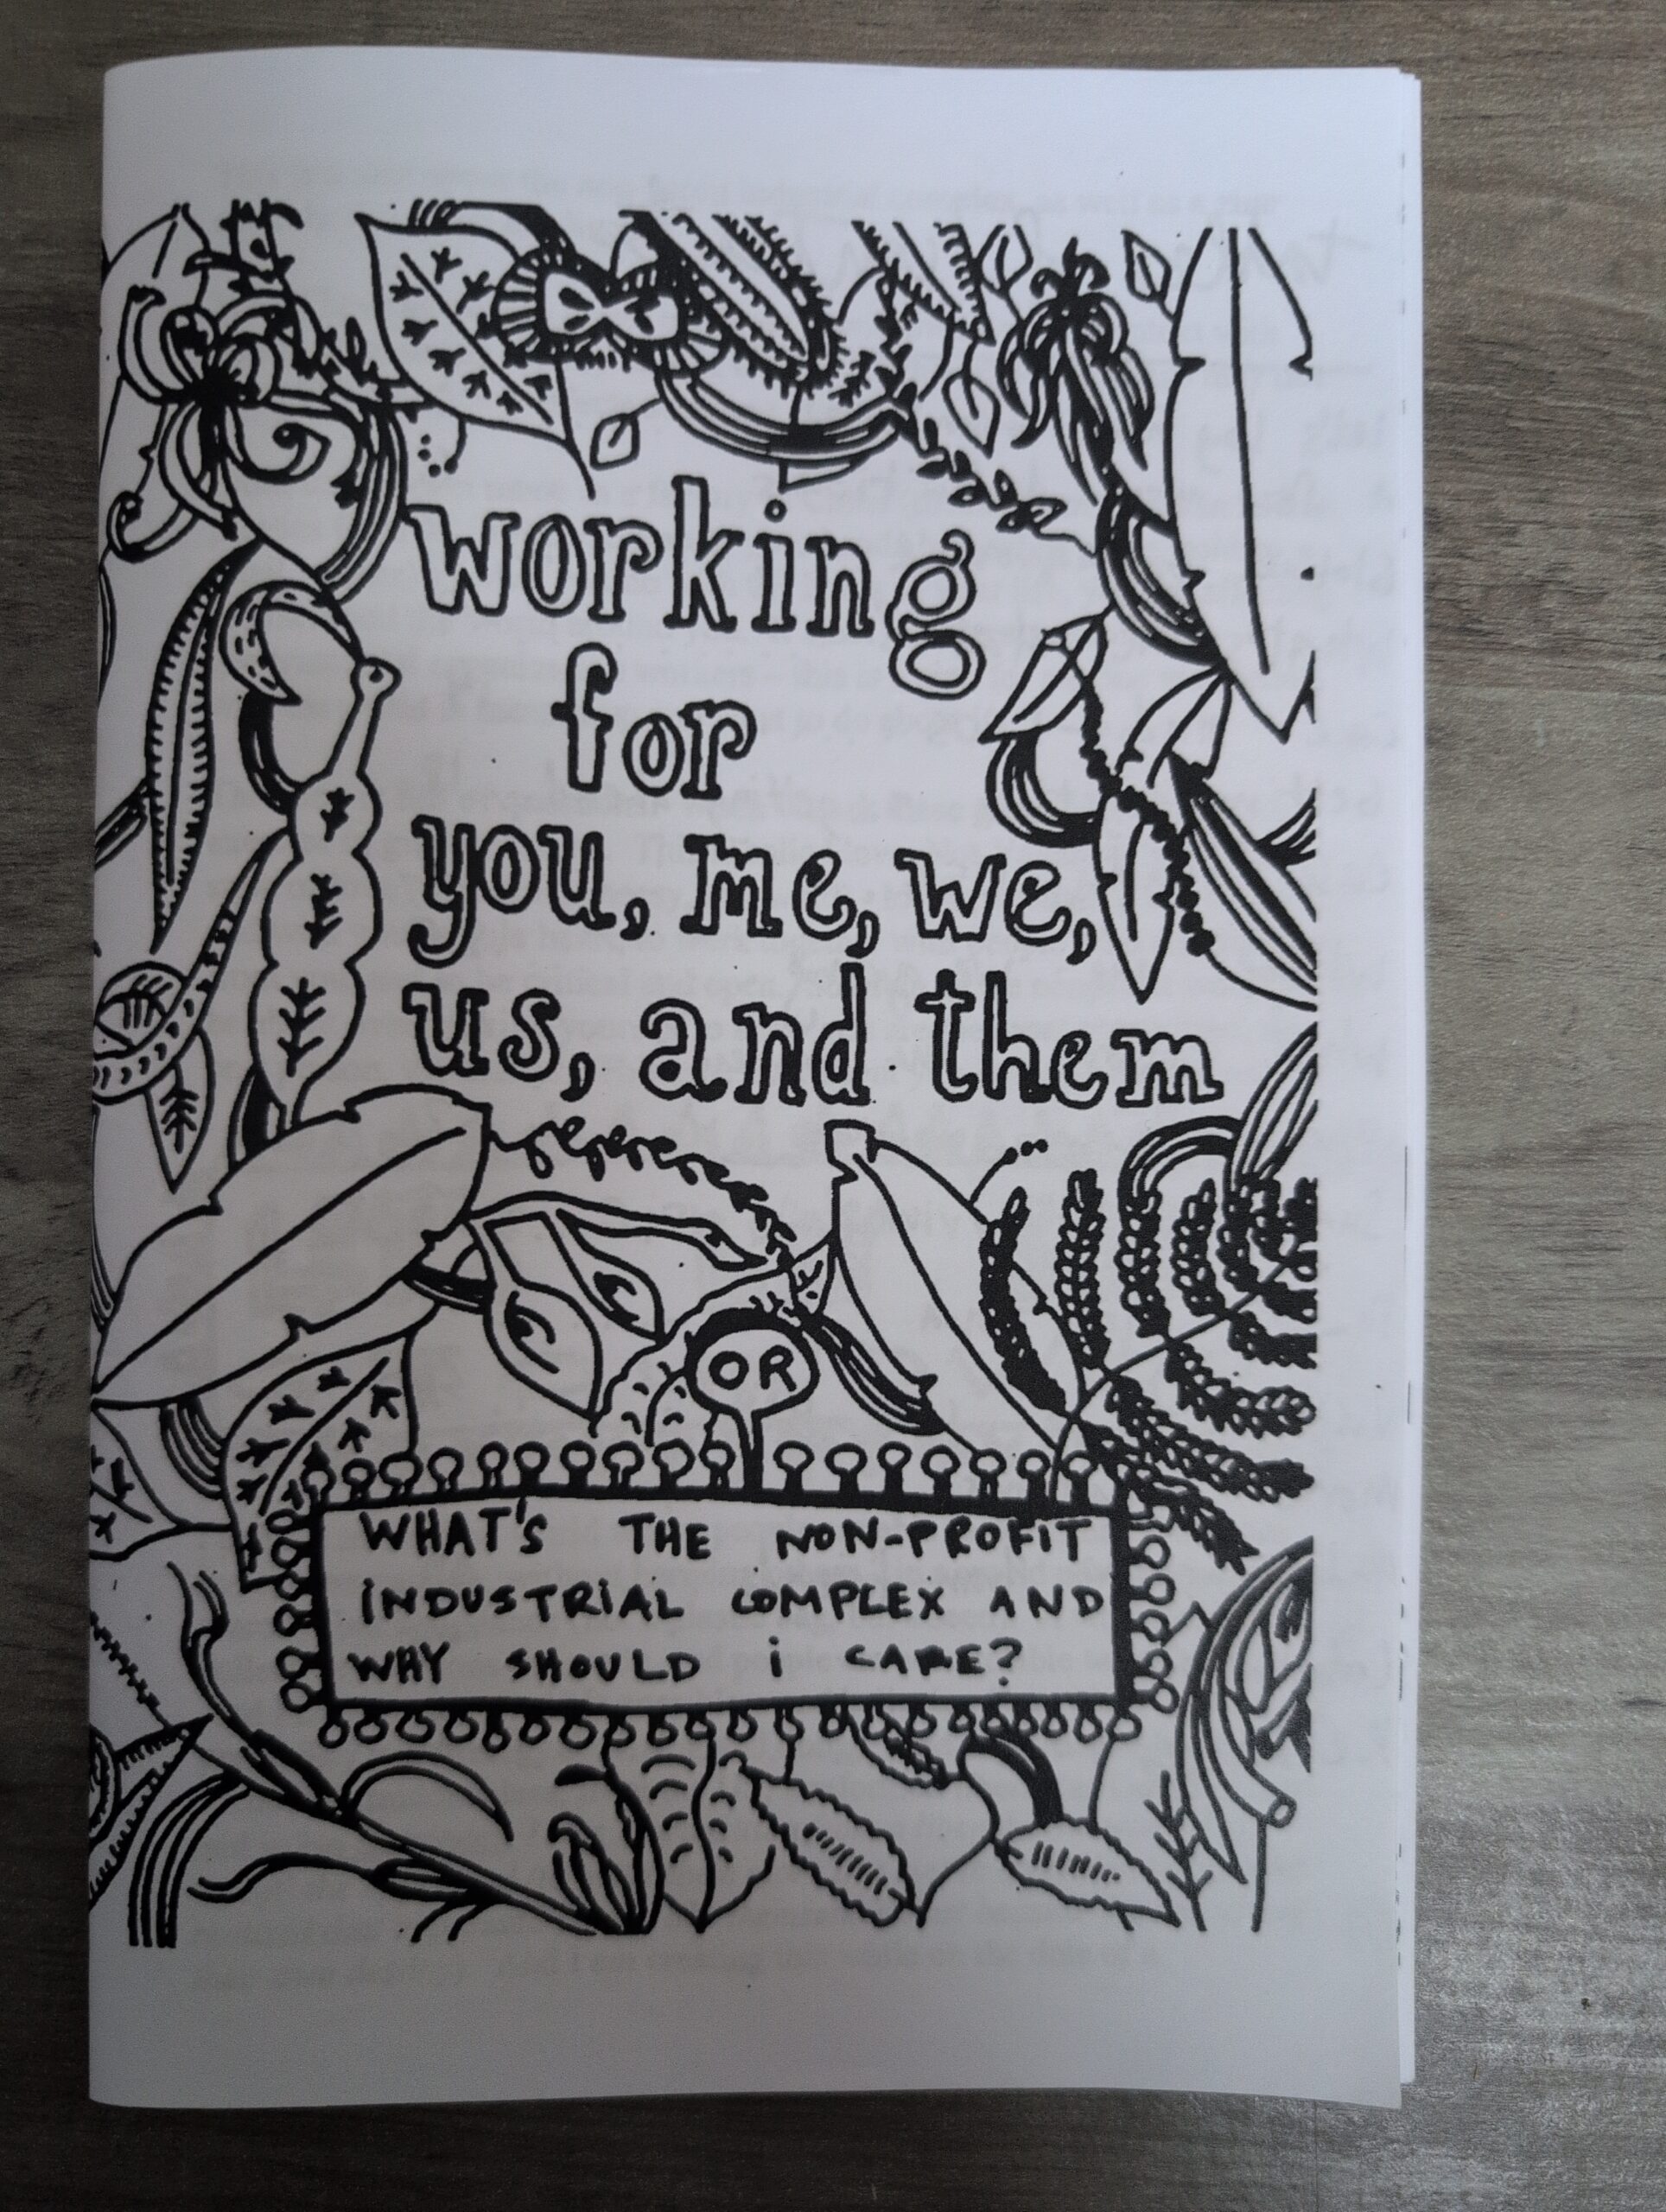 working
for
you, me, we,
us, and them
OR
WHAT'S THE NON-PROFIT
iNDUSTRiAL COMPLEX AND
WHY SHOULD i CARE?